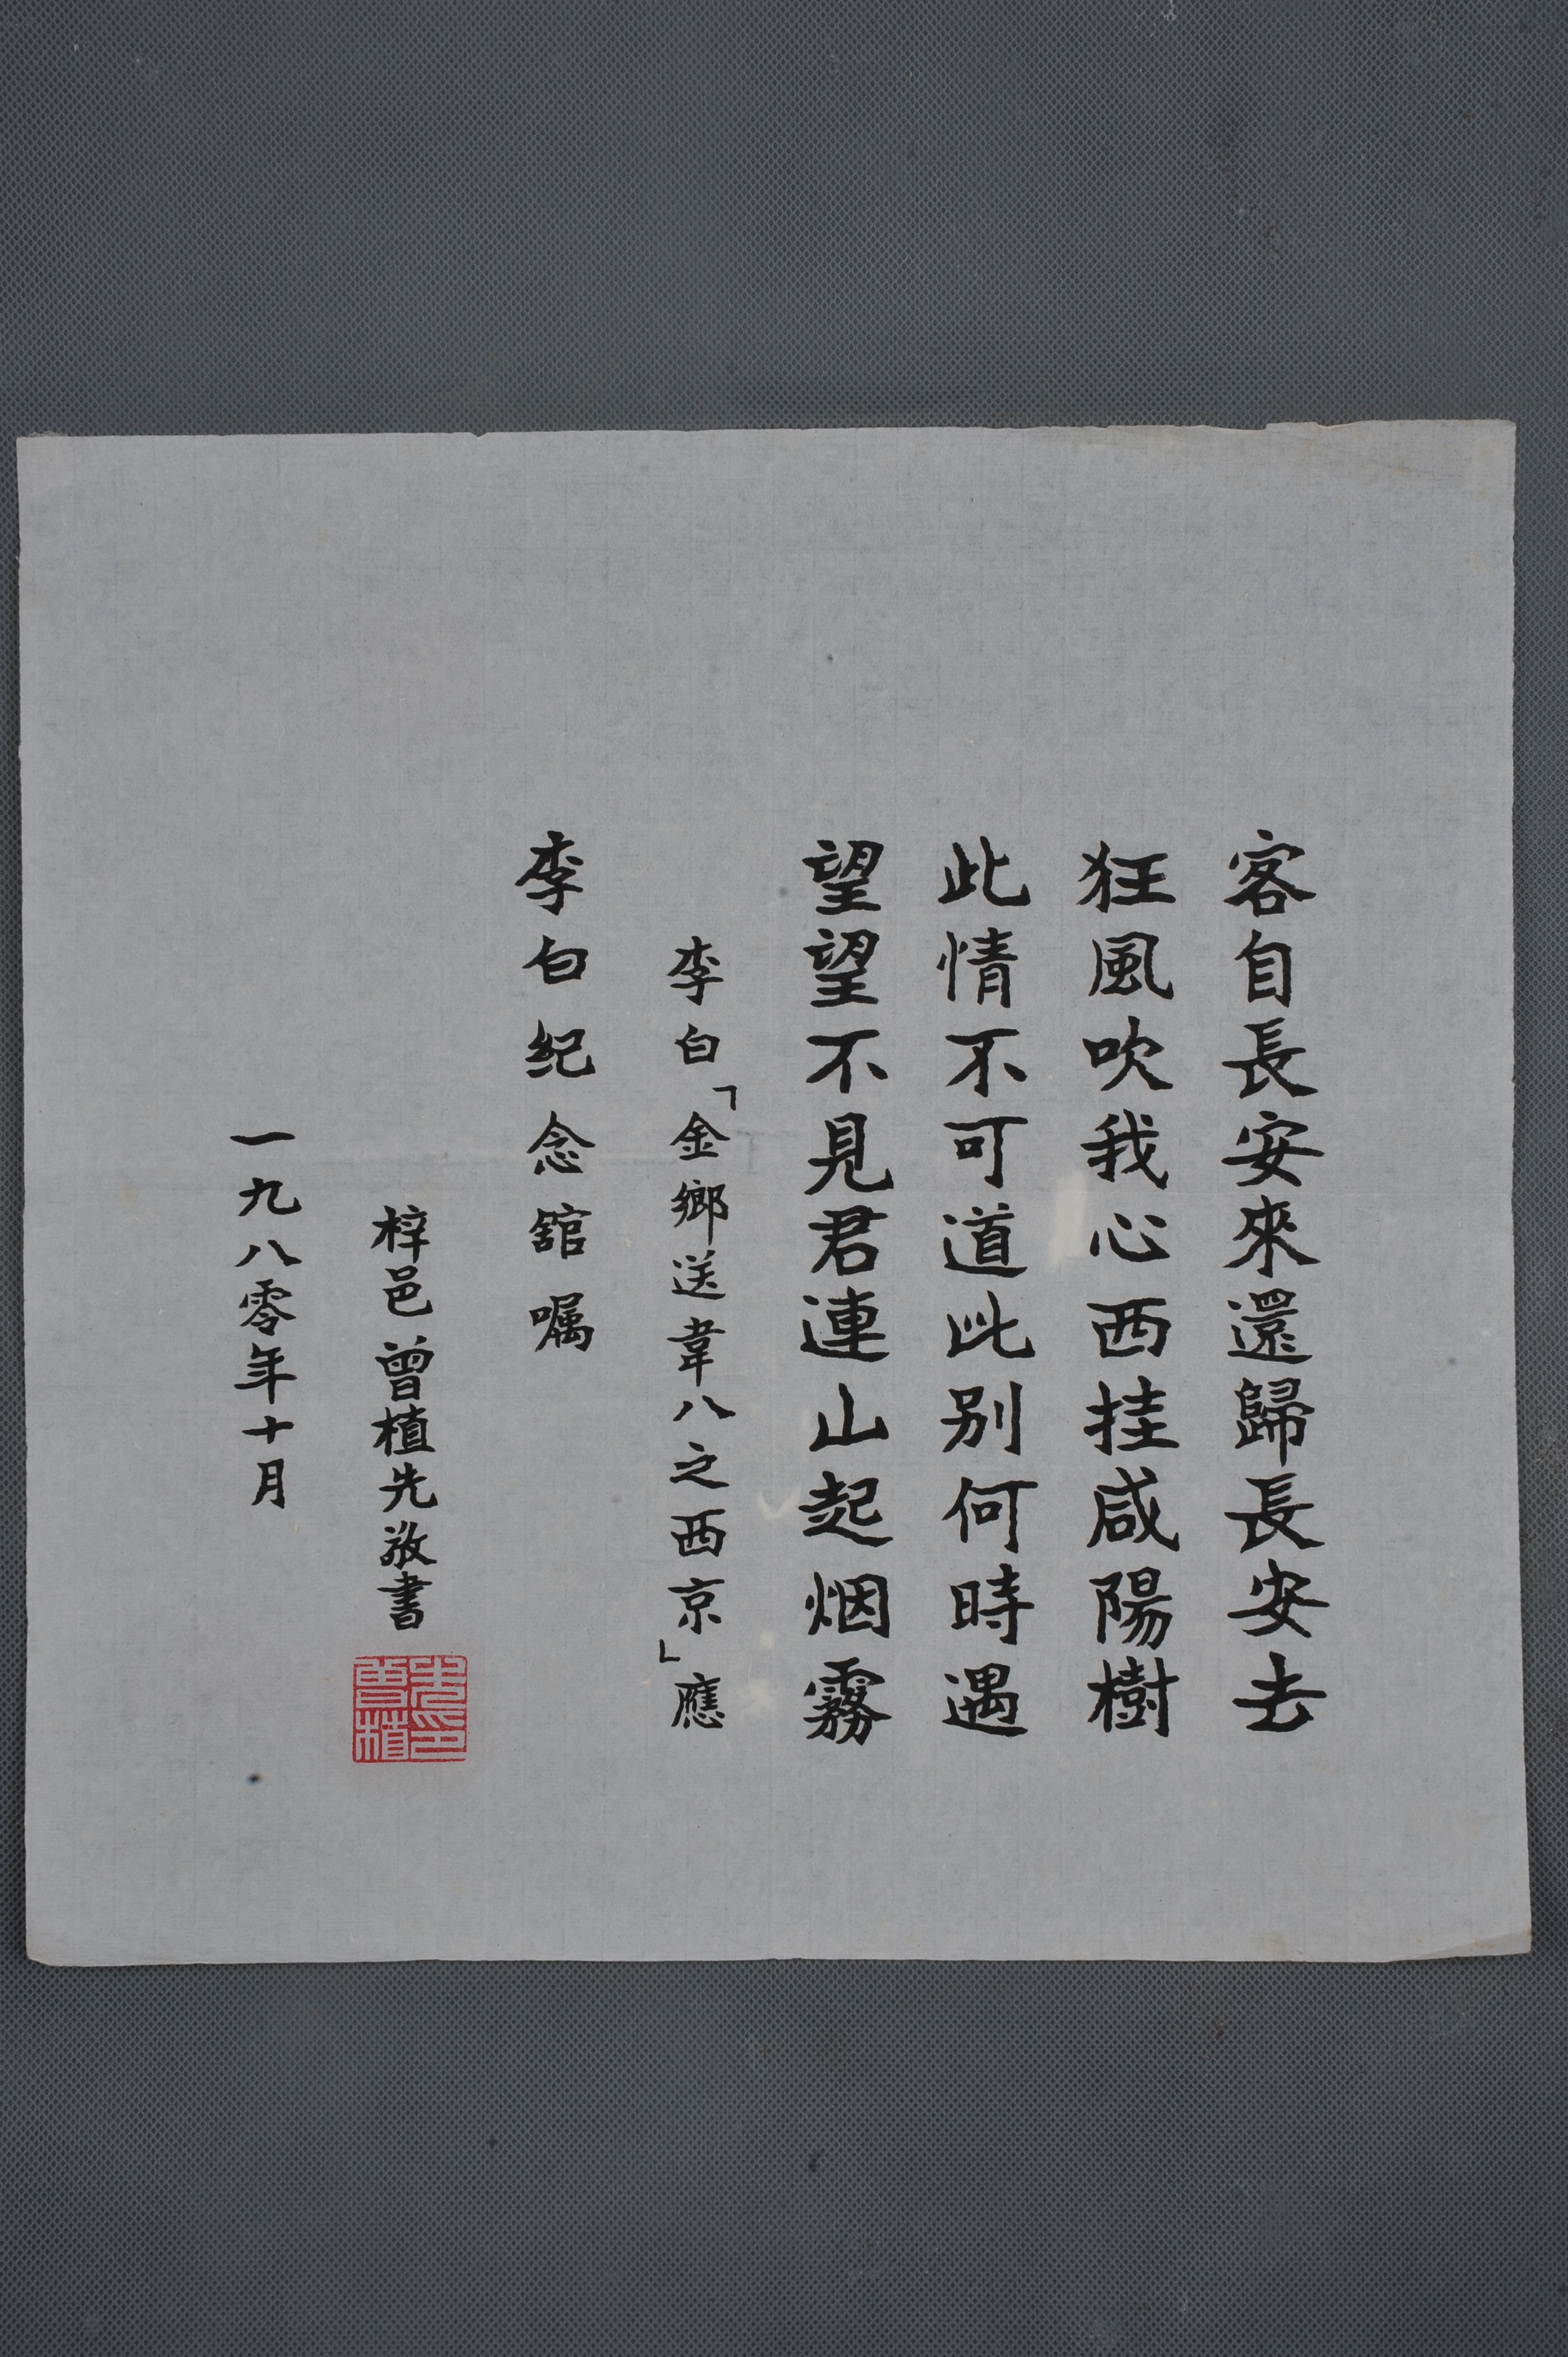 客自長安來還歸長安去
狂風吹我心西挂咸陽樹
此情不可道此别何時遇
望望不見君連山起烟霧
李白「金鄉送韋八之西京」應
李白纪念舘嘱
梓邑曾植先敬書
一九八零年十月
曾植先印